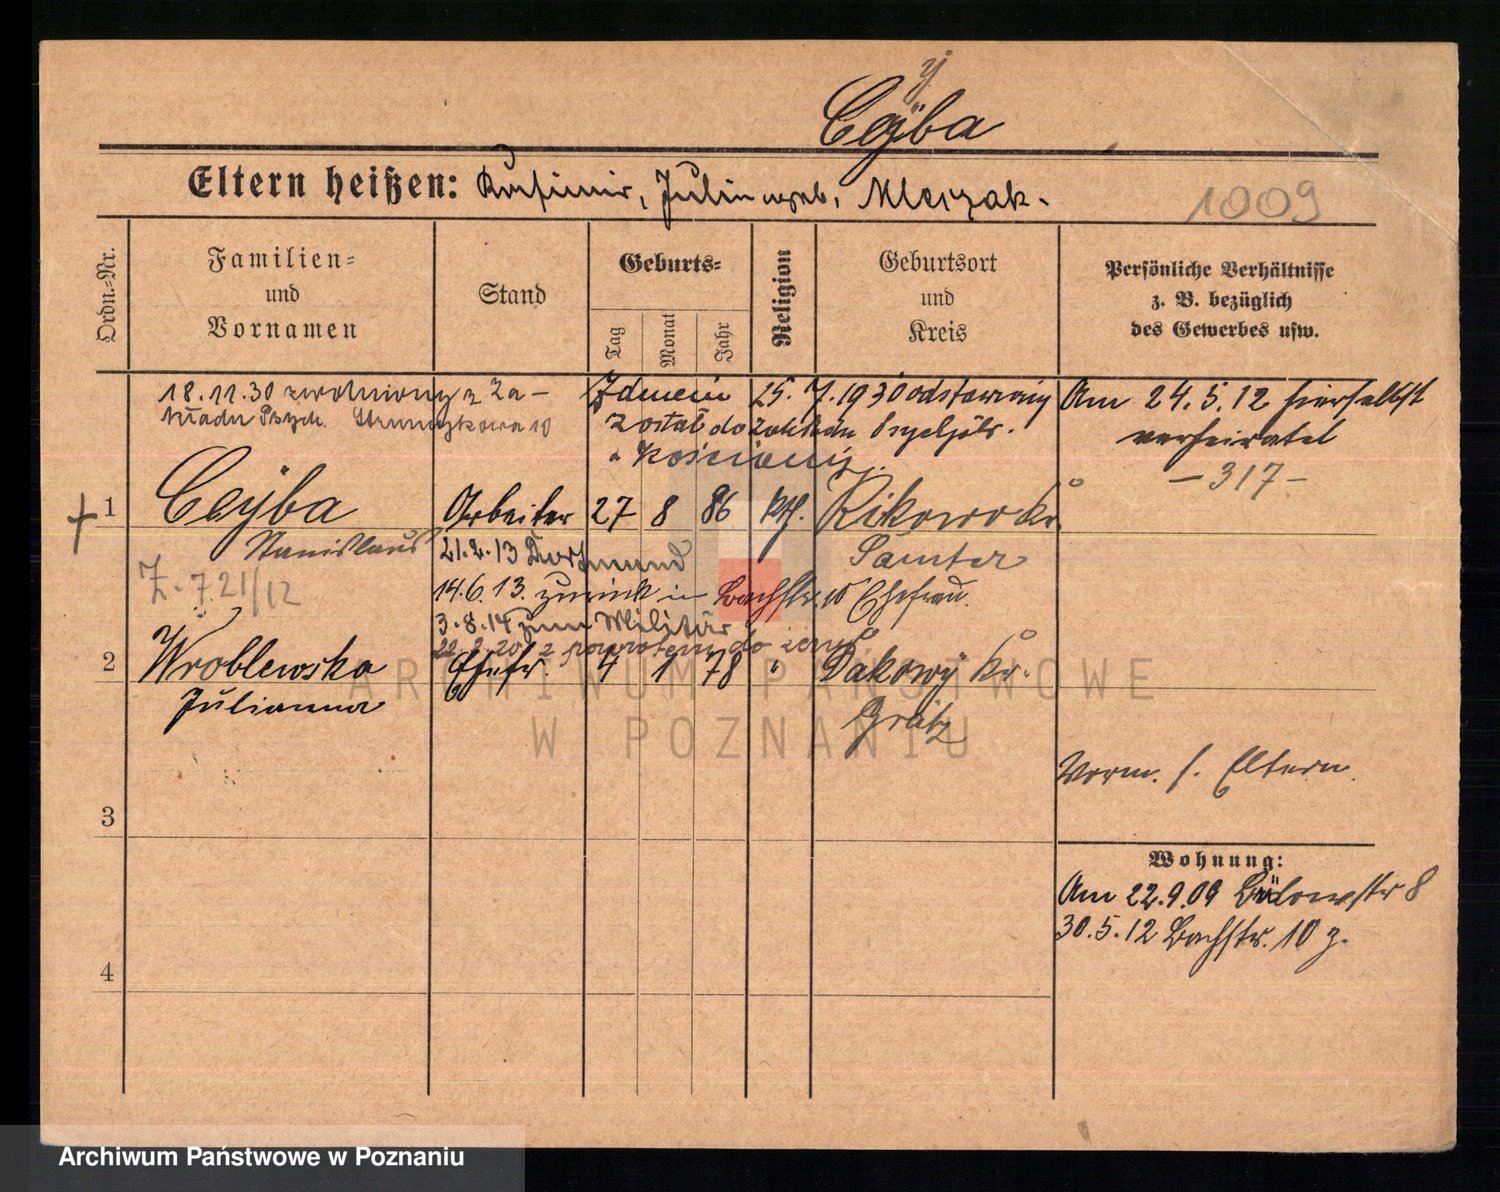 y
Cejba
Eltern heißen: Kasimir, Julia geb. Mleczak.
1009
Ordn.-Nr.
Familien-
und
Vornamen
Stand
Geburts-
Tag
Monat
Jahr
Religion
Geburtsort
und
Kreis
Persönliche Verhältnisse
z. B. bezüglich
des Gewerbes usw.
18.11.30 zwolniony z Za-
kładu Psych.
Z dniem 25.7.1930 odstawiony
został do Zakładu Psychjatr.
w Kościanie
Am 24.5.12 hierselbst
verheiratet
- 317 -
1 Cejba Arbeiter 27 8 86 kth. Rikowo Kr.
Stanislaus
Samter
21.2.13 Dortmund
14.6.13. zurück in Bachstr. 10 Ehefrau.
Z. 721/12
3.8.14 zum Militär
z powrotem do żony
2 Wroblewska Ehefr. 4 1 78 " Dakowy Kr.
Julianna
Grätz
Vorm. s. Eltern.
3
Wohnung:
Am 22.9.09 Bülowstr 8
30.5.12 Bachstr. 10 z.
4
ARCHIWUM PAŃSTWOWE
W POZNANIU
Archiwum Państwowe w Poznaniu